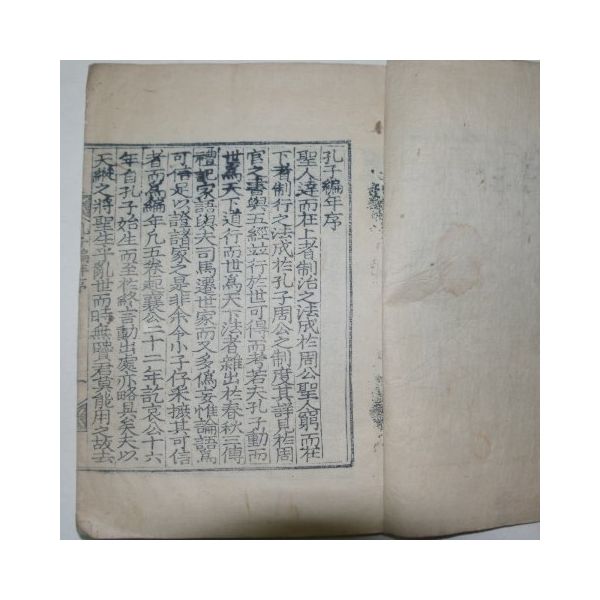 孔子編年序
聖人達而在上者制治之法成於周公聖人窮而在
下者制行之法成於孔子周公之制度其詳見於周
官之書與五經並行於世可得而考若夫孔子動而
世爲天下道行而世爲天下法者雜出於春秋三傳
禮記家語與夫司馬遷世家而又多僞妄惟論語爲
可信足以證諸家之是非余令小子仔采摭其可信
者而爲編年凡五卷起襄公二十二年訖哀公十六
年自孔子始生而至於終言動出處亦略具矣夫以
天縱之將聖生乎亂世而時無賢君莫能用之故去